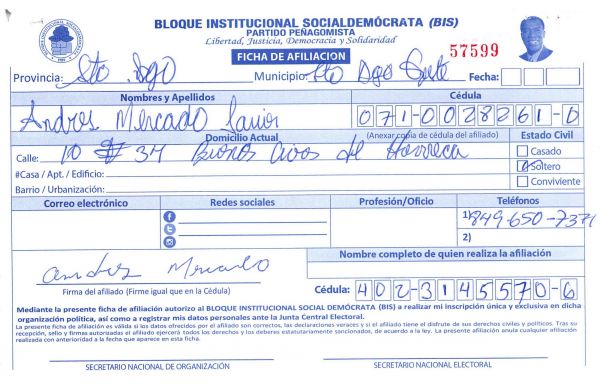 BLOQUE INSTITUCIONAL SOCIALDEMÓCRATA (BIS)
PARTIDO PEÑAGOMISTA
Libertad, Justicia, Democracia y Solidaridad
FICHA DE AFILIACION
57599
Provincia: Sto. Dgo Municipio: Sto Dgo Fecha:
Nombres y Apellidos Cédula
Andres Mercado 071-0028261-0
Domicilio Actual (Anexar copia de cédula del afiliado) Estado Civil
Calle: 10 # 37 Buenos de Herrera
Casado
#Casa / Apt. / Edificio: Soltero
Barrio / Urbanización: Conviviente
Correo electrónico Redes sociales Profesión/Oficio Teléfonos
1) 849-650-7371
2)
Nombre completo de quien realiza la afiliación
Mercado
Firma del afiliado (Firme igual que en la Cédula) Cédula: 402-3145570-6
Mediante la presente ficha de afiliación autorizo al BLOQUE INSTITUCIONAL SOCIAL DEMÓCRATA (BIS) a realizar mi inscripción única y exclusiva en dicha
organización política, así como a registrar mis datos personales ante la Junta Central Electoral.
La presente ficha de afiliación es válida si los datos ofrecidos por el afiliado son correctos, las declaraciones veraces y si el afiliado tiene el disfrute de sus derechos civiles y políticos. Tras su
recepción, sello y firmas autorizadas el afiliado ejercerá todos los derechos y los deberes estatutariamente sancionados, de acuerdo a la ley. La presente afiliación anula cualquier afiliación
realizada con anterioridad a la fecha que aparece en esta ficha.
SECRETARIO NACIONAL DE ORGANIZACIÓN SECRETARIO NACIONAL ELECTORAL